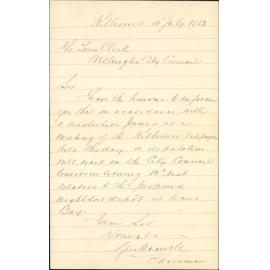 Kilbirnie 11th July 1883
The Town Clerk
Wellington City Council
Sir
I have the honour to inform
you that in accordance with
a resolution passed at a
meeting of the Kilbirnie ratepayers
held this day, a deputation
will wait on the City Council
tomorrow evening 12th inst
relative to the proposed
nightsoil depôt at Evans
Bay.
I am Sir
Yours &c
Chairman